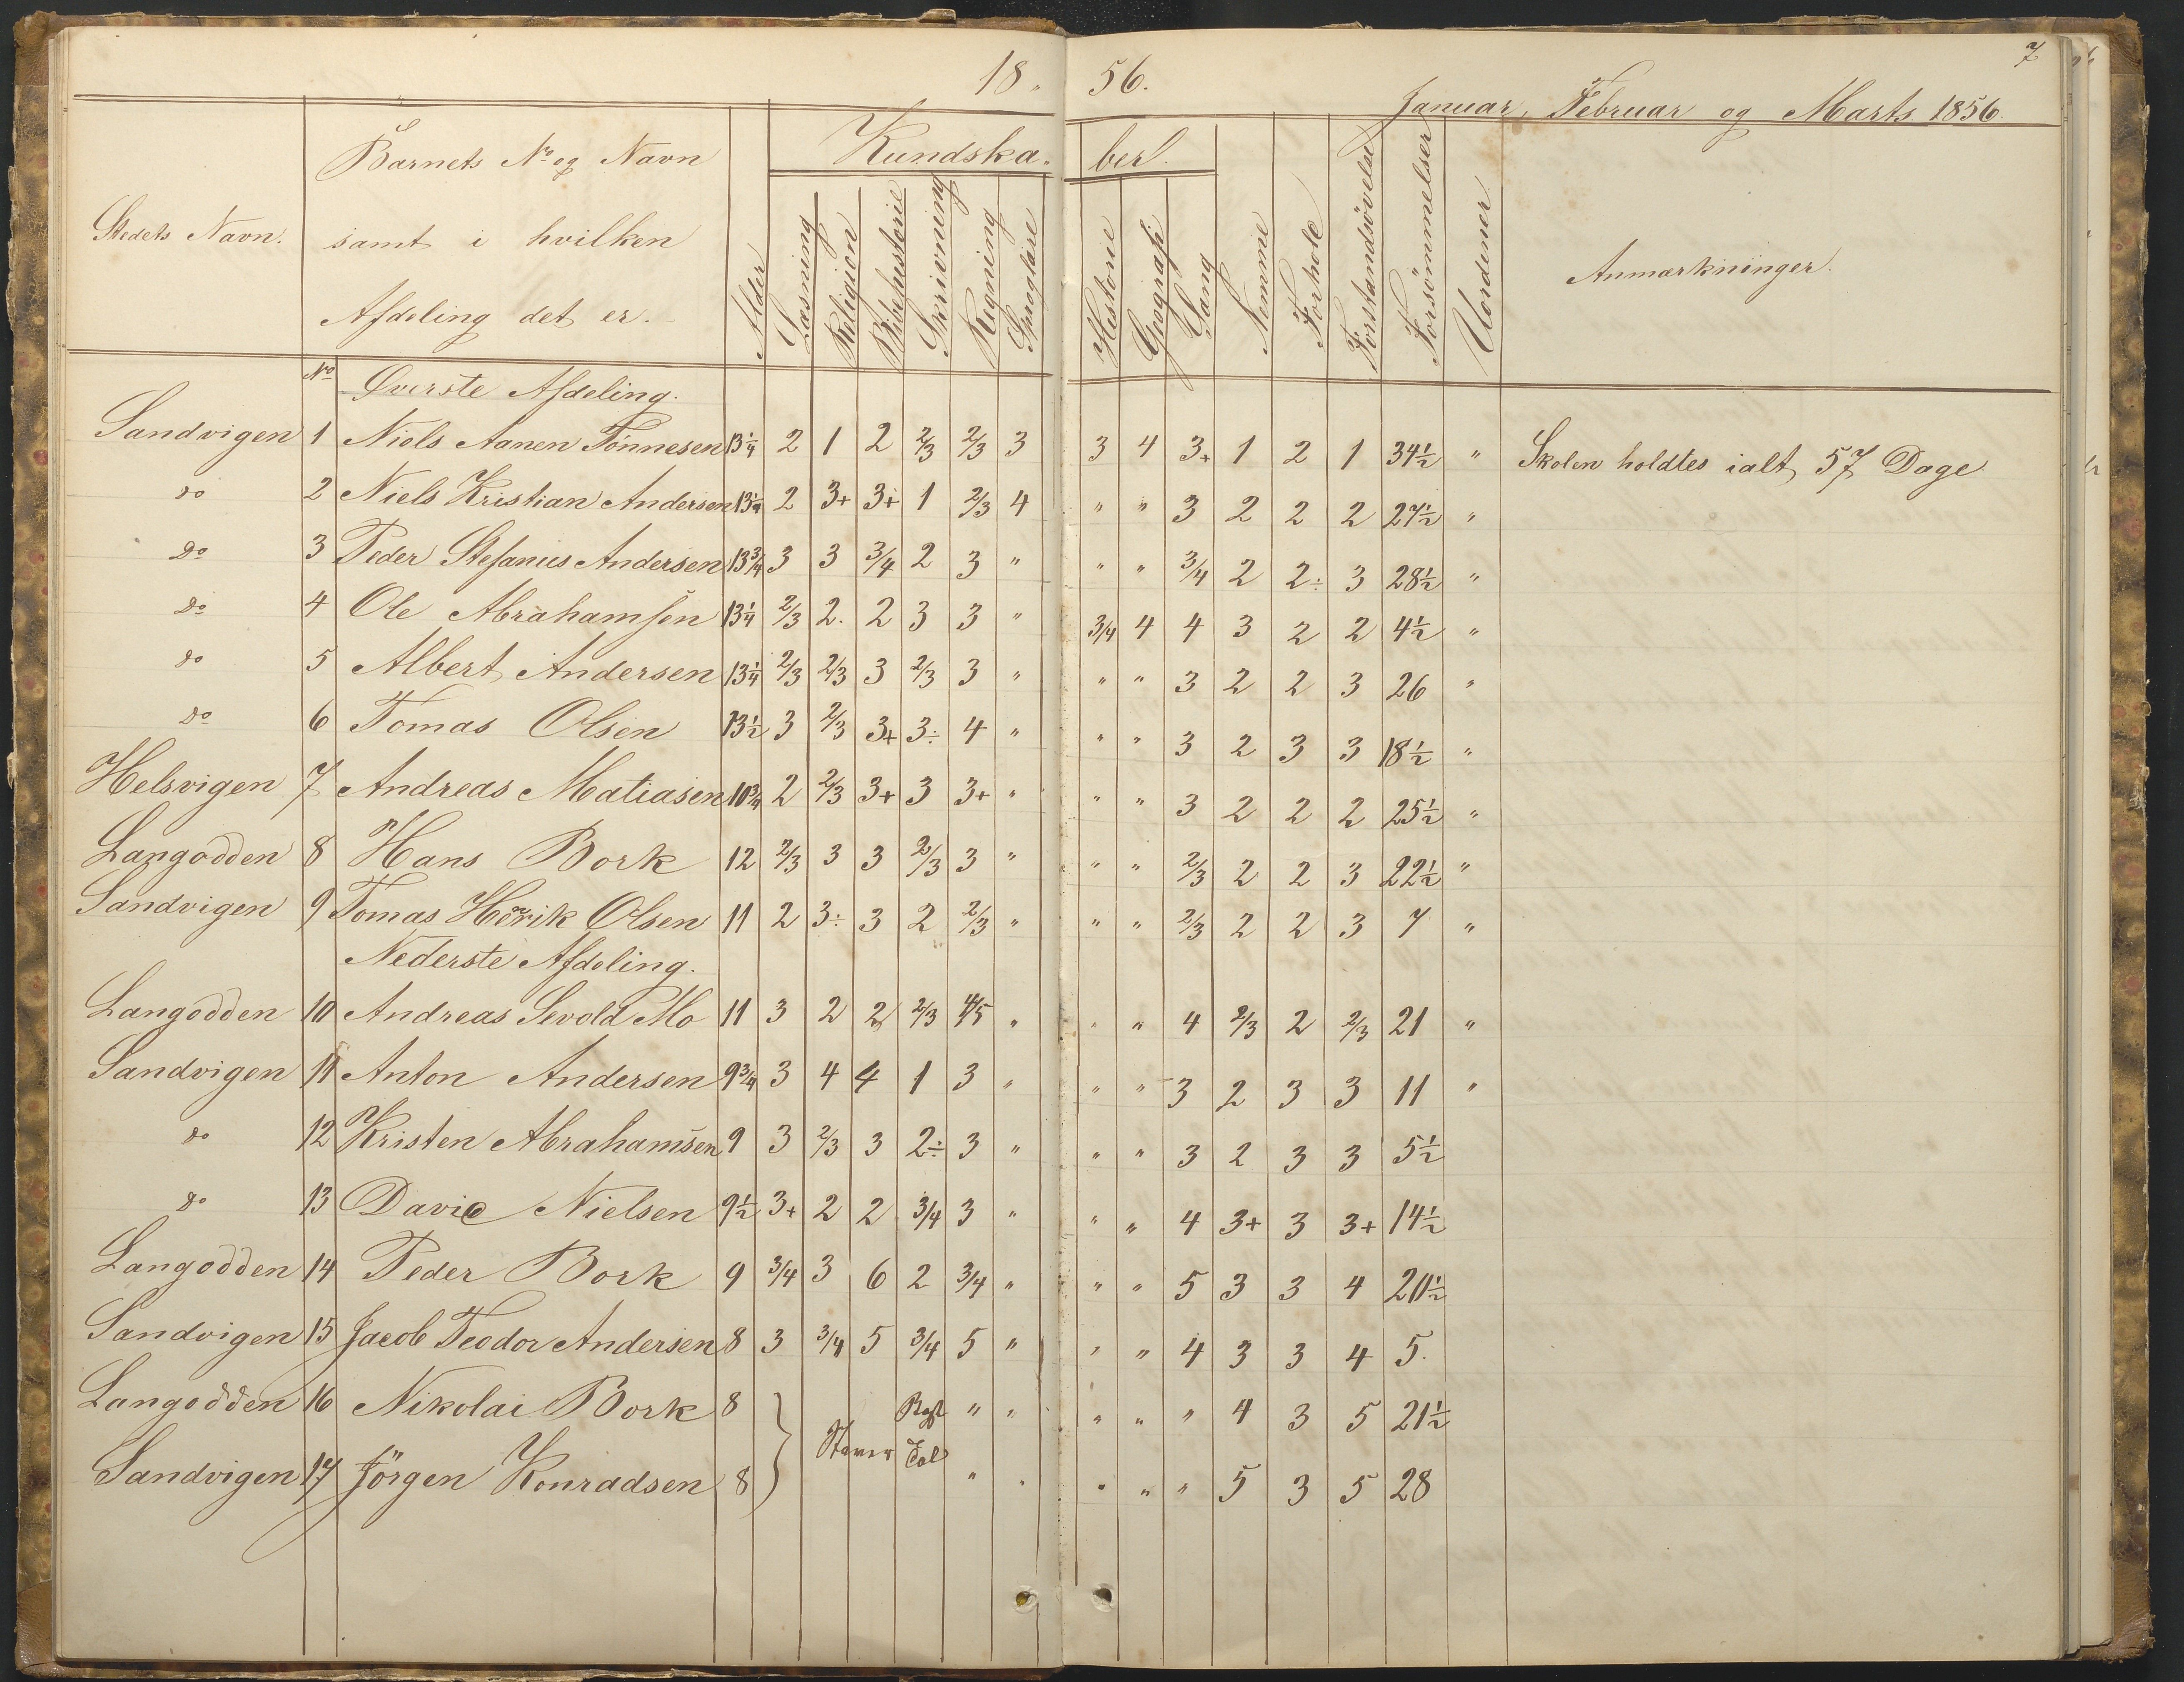 18. 56.
7
Januar, Februar og Marts 1856.
Stedets Navn.
Barnets No og Navn
samt i hvilken
Afdeling det er.
Alder
Kundska- ber.
Læsning Religion Bibelhistorie Skrivning Regning Sproglære Historie Geografi Sang Nemme Forhold Forstandsøvelse Forsömmelser Uordener
Anmærkninger.
No Øverste Afdeling.
Sandvigen 1 Niels Aanen Tønnesen 13¼ 2 1 2 2/3 2/3 3 3 4 3+ 1 2 1 34½ " Skolen holdtes ialt 57 Dage
do 2 Niels Kristian Andersen 13¼ 2 3+ 3+ 1 2/3 4 " " 3 2 2 2 27½ "
do 3 Peder Stefanius Andersen 13¾ 3 3 3/4 2 3 " " " 3/4 2 2÷ 3 28½ "
do 4 Ole Abrahamsen 13¼ 2/3 2. 2 3 3 " 3/4 4 4 3 2 2 4½ "
do 5 Albert Andersen 13¼ 2/3 2/3 3 2/3 3 " " " 3 2 2 3 26 "
do 6 Tomas Olsen 13½ 3 2/3 3+ 3÷ 4 " " " 3 2 3 3 18½ "
Helsvigen 7 Andreas Matiasen 10¾ 2 2/3 3+ 3 3+ " " " 3 2 2 2 25½ "
Langodden 8 Hans Bork 12 2/3 3 3 2/3 3 " " " 2/3 2 2 3 22½ "
Sandvigen 9 Tomas Henrik Olsen 11 2 3÷ 3 2 2/3 " " " 2/3 2 2 3 7 "
Nederste Afdeling.
Langodden 10 Andreas Sevold Mo 11 3 2 2 2/3 4/5 " " " 4 2/3 2 2/3 21 "
Sandvigen 11 Anton Andersen 9¾ 3 4 4 1 3 " " " 3 2 3 3 11 "
do 12 Kristen Abrahamsen 9 3 2/3 3 2÷ 3 " " " 3 2 3 3 5½
do 13 David Nielsen 9½ 3+ 2 2 3/4 3 " " " 4 3+ 3 3+ 14½
Langodden 14 Peder Bork 9 3/4 3 6 2 3/4 " " " 5 3 3 4 20½
Sandvigen 15 Jacob Teodor Andersen 8 3 3/4 5 3/4 5 " " " 4 3 3 4 5.
Langodden 16 Nikolai Bork 8 } " " " " " 4 3 5 21½
Sandvigen 17 Jörgen Konradsen 8 " " " " " 5 3 5 28